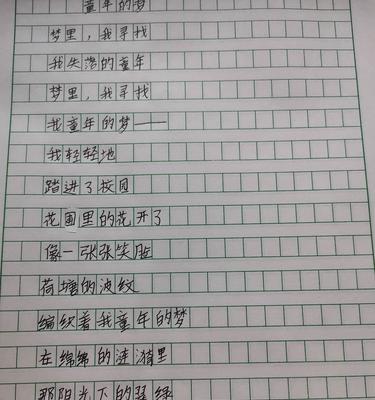 童年的梦
梦里，我寻找
我失落的童年
梦里，我寻找
我童年的梦——
我轻轻地
踏进了校园
花园里的花开了
像一张张笑脸
荷塘的波纹
编织着我童年的梦
在绵绵的涟漪里
那阳光下的翠绿